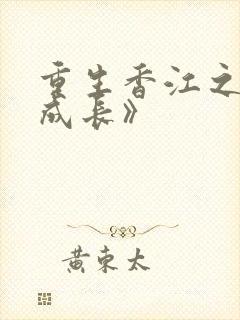 重生香江之
成长》
黄东太